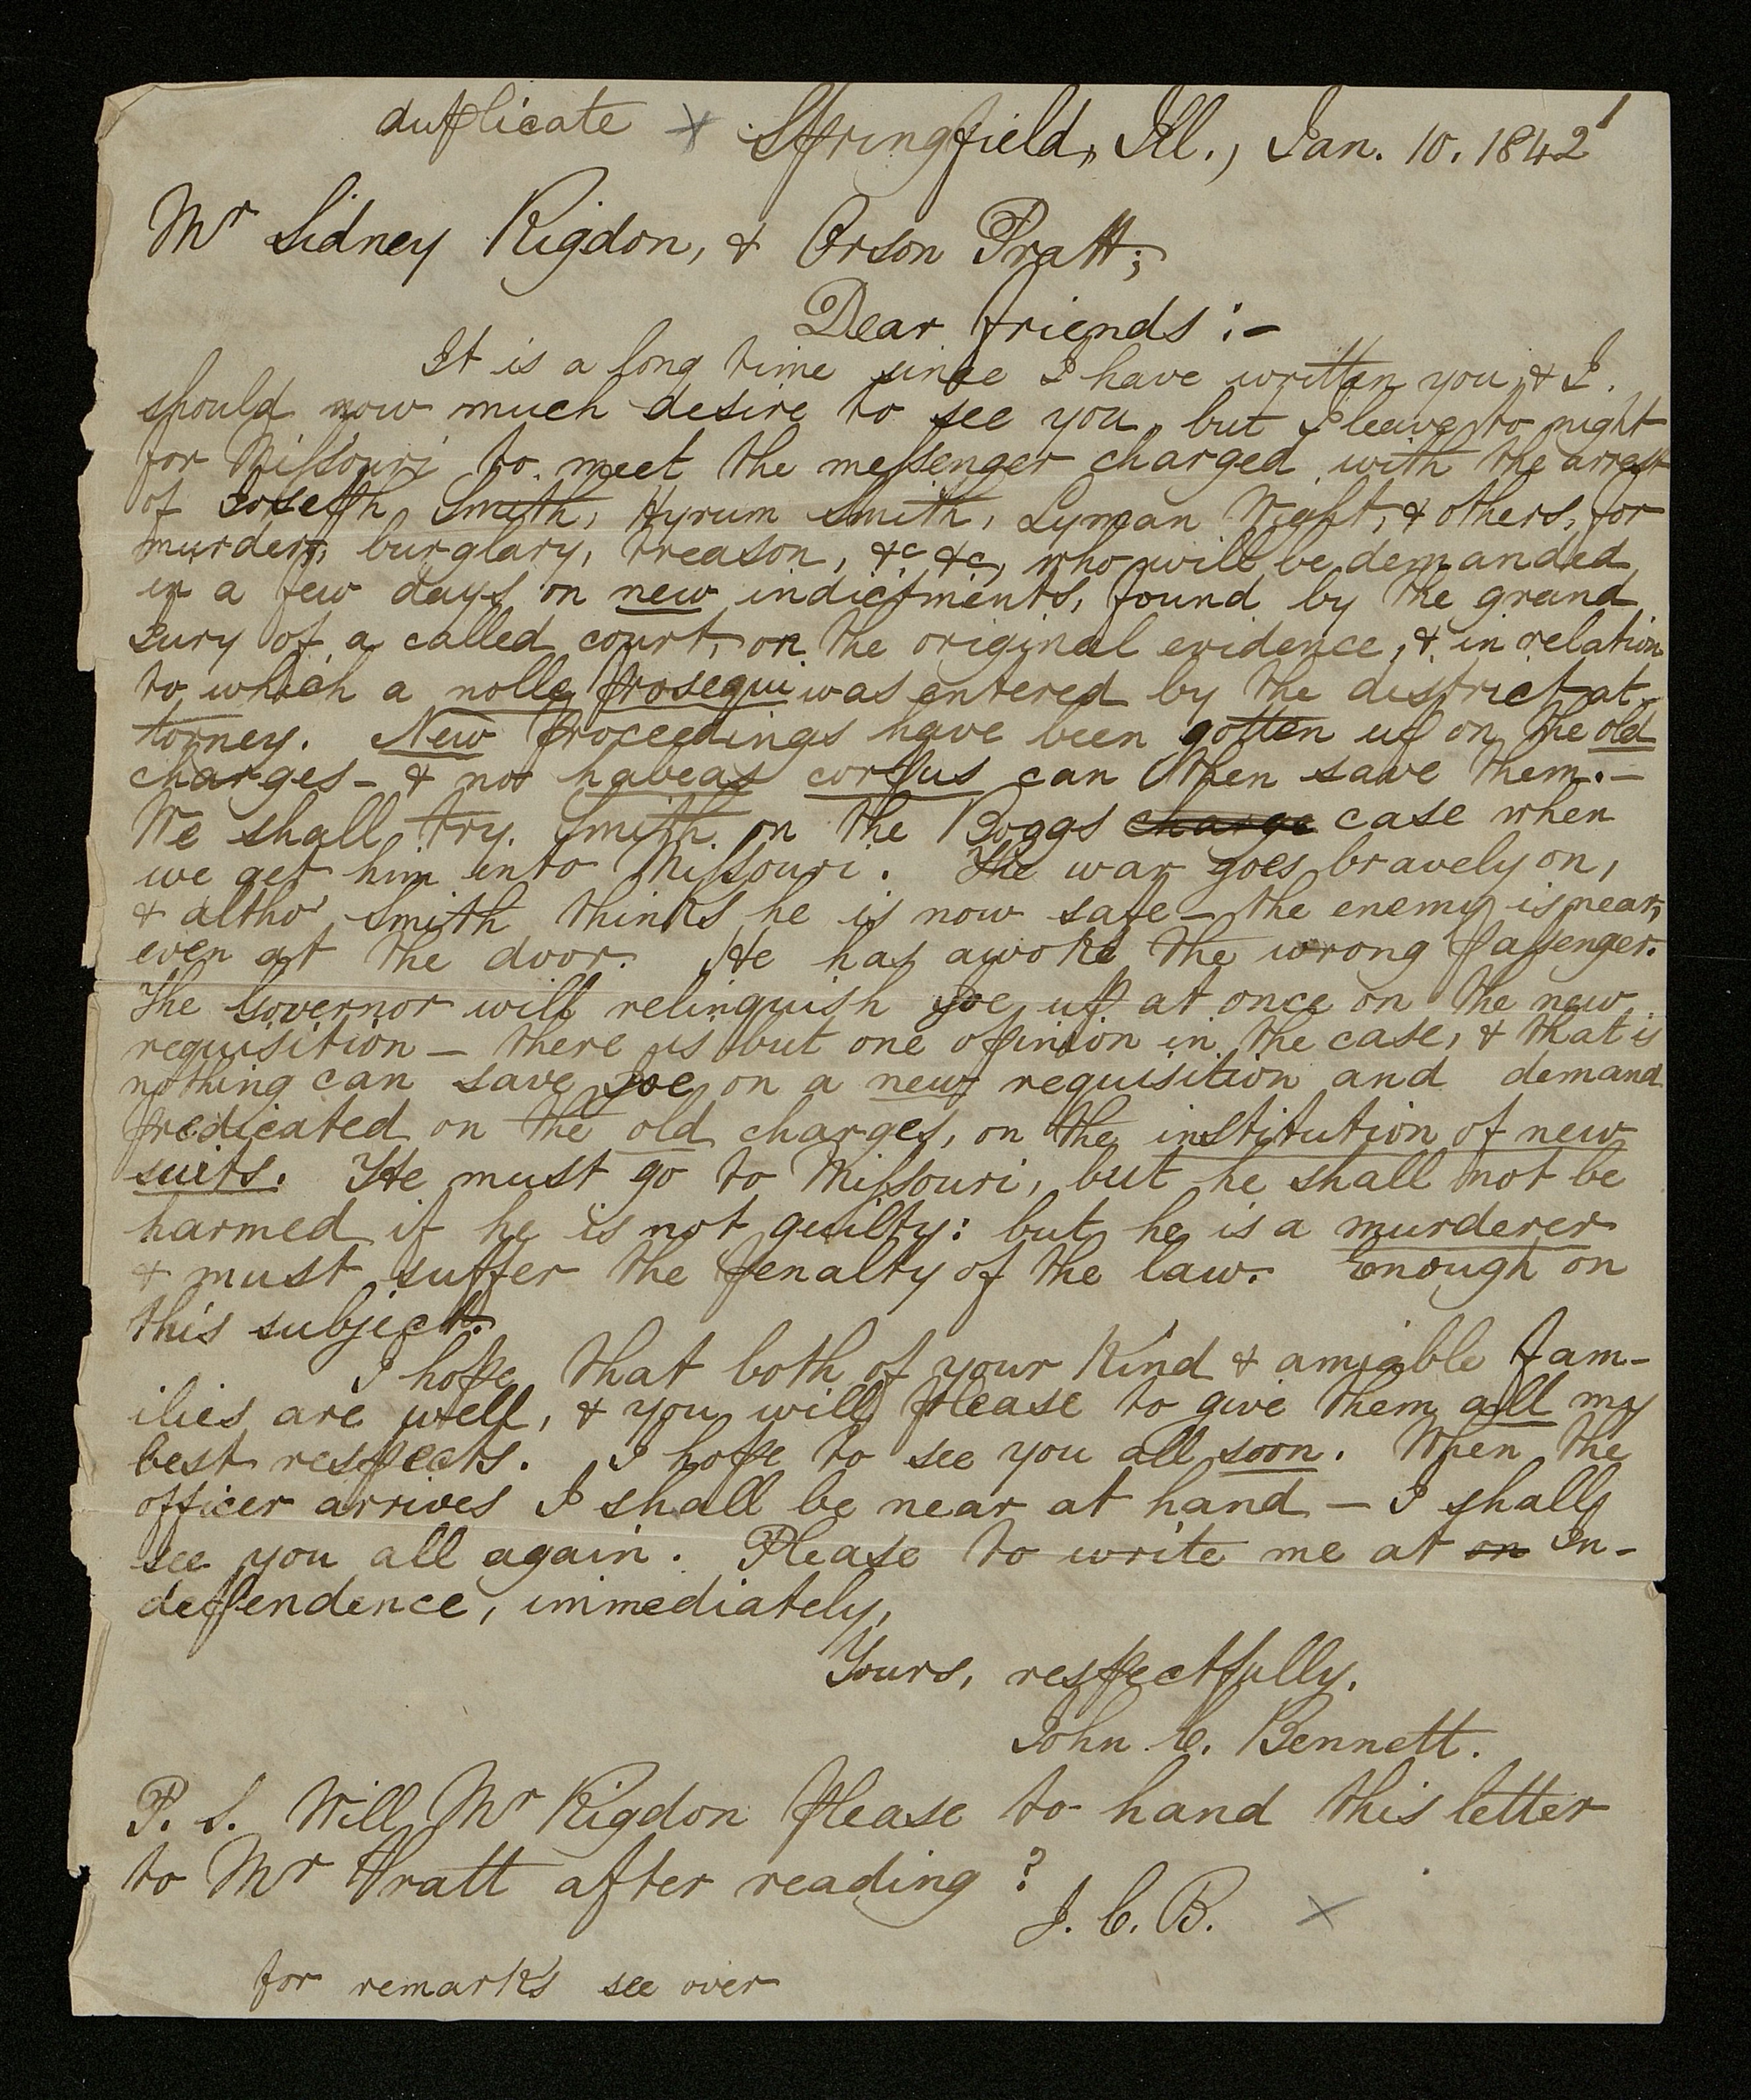 duplicate Springfield, Ill., Jan. 10. 1842 1
Mr Sidney Rigdon, & Orson Pratt;
Dear friends:-
It is a long time since I have written you, & I
should now much desire to see you, but I leave to night
for Missouri to meet the messenger charged with the arrest
of Joseph Smith, Hyrum Smith, Lyman Wight, & others, for
murder, burglary, treason, &c &c, who will be demanded
in a few days on new indictments, found by the grand
Jury of a called court, on the original evidence, & in relation
to which a nolle prosequi was entered by the district at-
torney. New proceedings have been gotten up on the old
charges - & no habeas corpus can then save them. -
We shall try Smith on the Boggs charge case when
we get him into Missouri. The war goes bravely on,
& altho' Smith thinks he is now safe - the enemy is near,
even at the door. He has awoke the wrong passenger.
The Governor will relinquish Joe up at once on the new
requisition - there is but one opinion in the case, & that is
nothing can save Joe on a new requisition and demand
predicated on the old charges, on the institution of new
suits. He must go to Missouri, but he shall not be
harmed if he is not guilty: but he is a murderer
& must suffer the penalty of the law. Enough on
this subject.
I hope that both of your kind & amiable fam-
ilies are well, & you will please to give them all my
best respects. I hope to see you all soon. When the
officer arrives I shall be near at hand - I shall
see you all again. Please to write me at on In-
dependence, immediately,
Yours, respectfully,
John C. Bennett.
P. S. Will Mr Rigdon please to hand this letter
to Mr Pratt after reading?
J. C. B.
for remarks see over